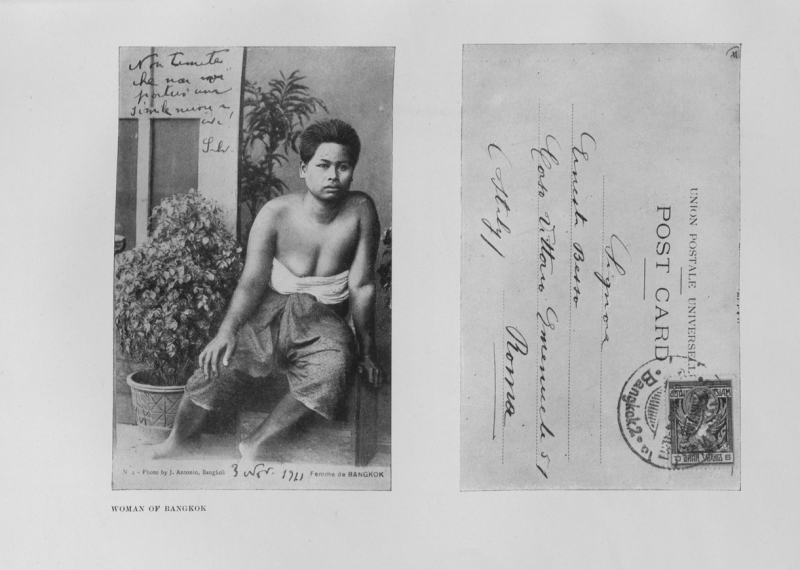 Non temete
che non
portin una
simile
N 2 - Photo by J. Antonio, Bangkok
3 Nov. 1911
Femme de BANGKOK
WOMAN OF BANGKOK
UNION POSTALE UNIVERSELLE
POST CARD
Signora
Ernesta Besso
Corso Vittorio Emanuele 51
Roma
(Italy)
Bangkok 2
SIAM